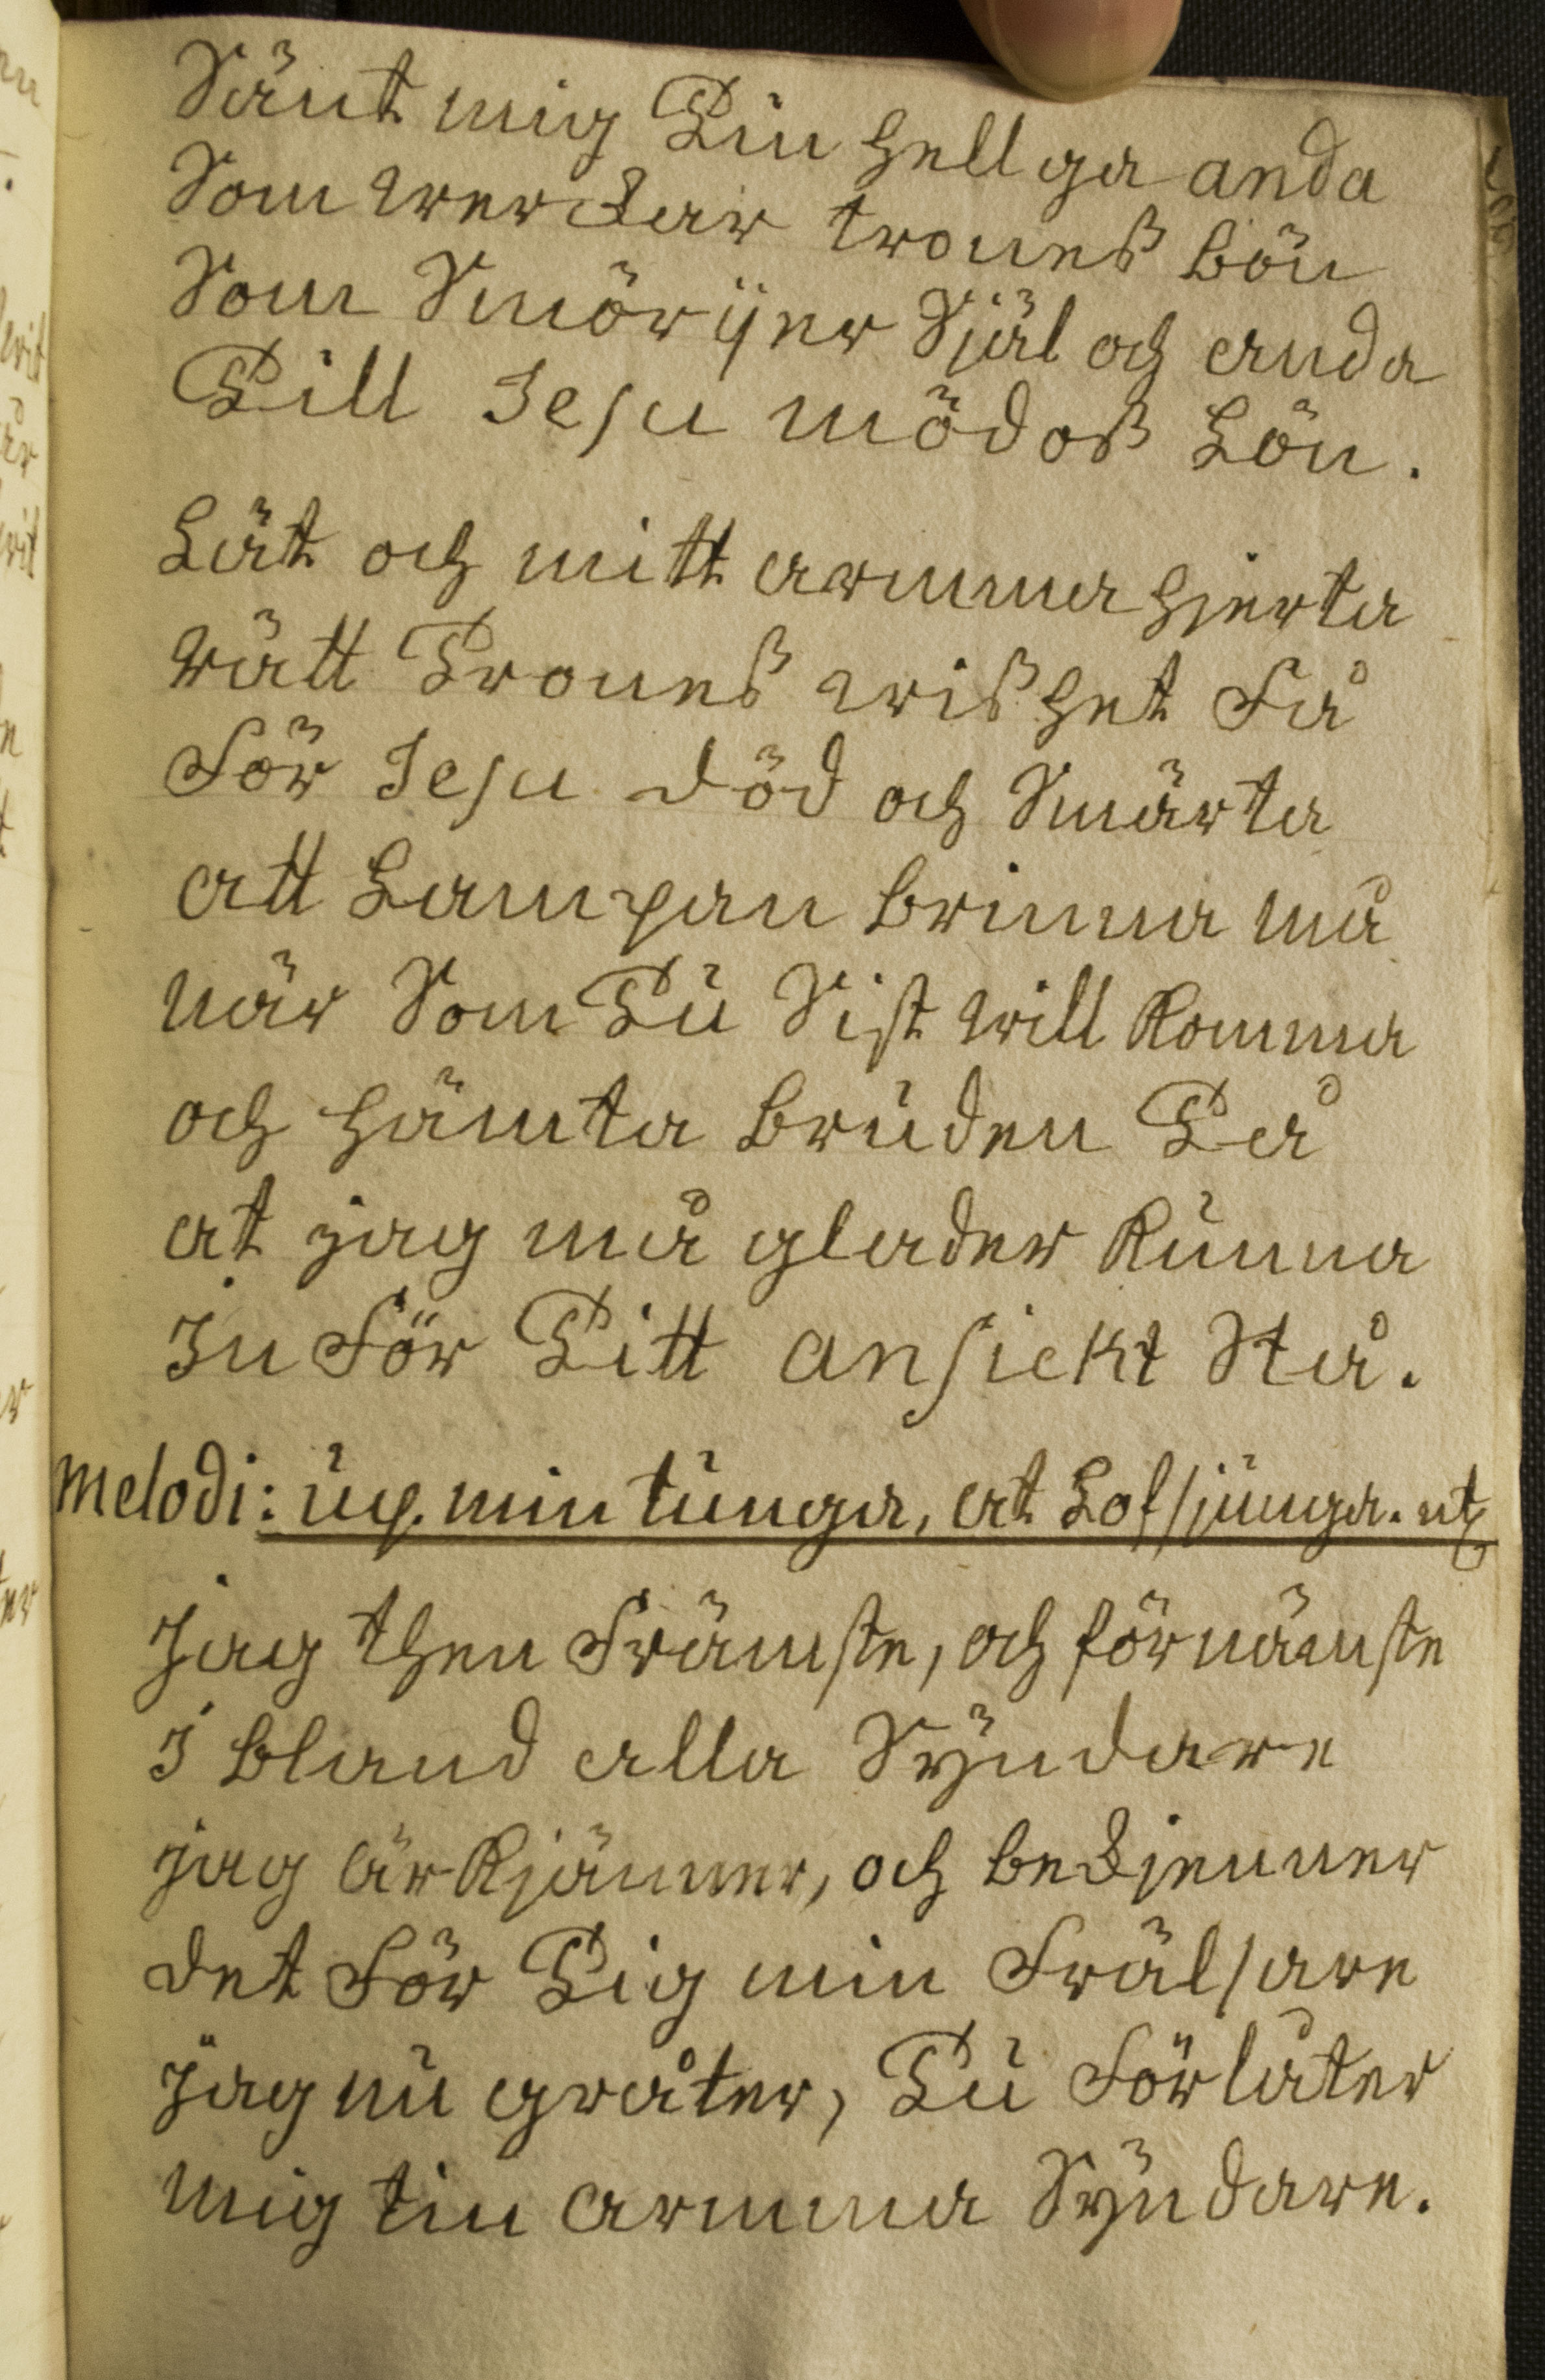 Sänt mig Din hellga anda
Som werckar trones bön
Som Smörijer Själ och anda
Till Jesu mödos Lön.
Låt och mitt armma hjerta
rätt Trones wishet Få
För Jesu död och Smärta
att Lampan brinna må
när Som Du Sist will Komma
och hämta bruden Då
at jag må glader Kunna
In För Ditt ansickt Stå.
Melodi: up. min tunga, at Lofsjunga. etc
Jag then Främste, och förnämste
I bland alla Syndare
jag ärkjänner, och bekjenner
det För Dig min Frälsare
Jag nu gråter, Du Förlåter
mig tin armma Syndare.